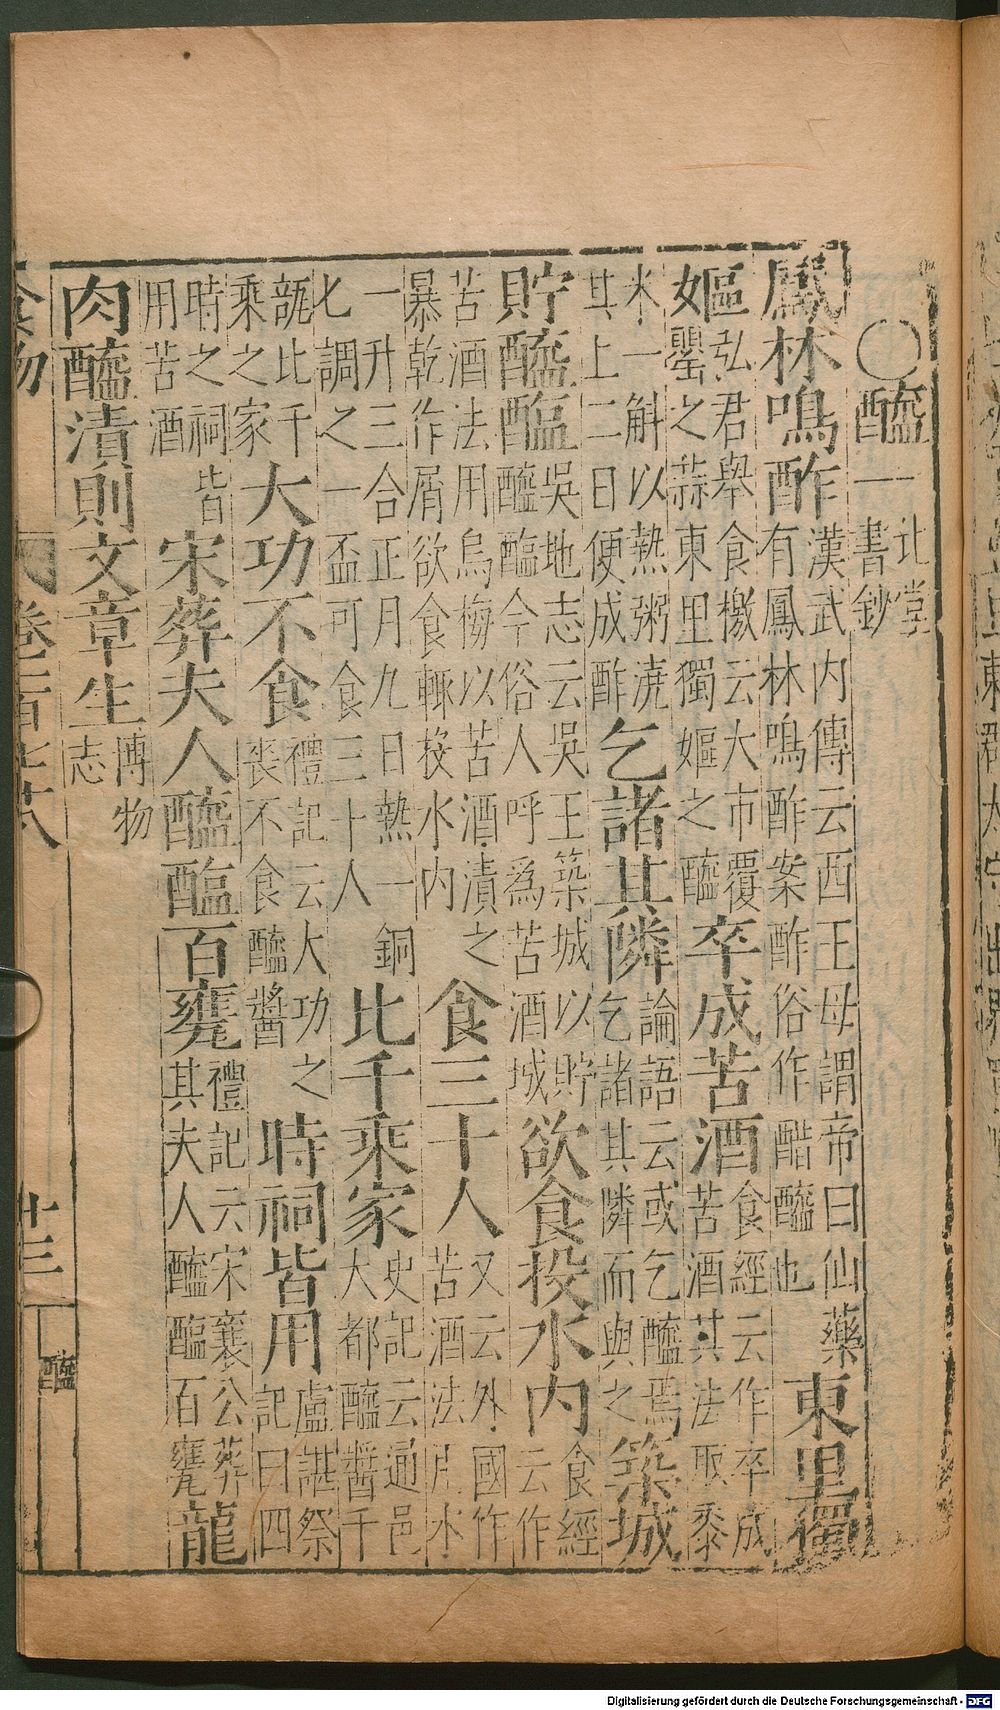 ○醯一北堂書鈔
鳳林鳴酢漢武内傳云西王母謂帝曰仙藥有鳳林鳴酢案酢俗作醋醯也東里獨
嫗弘君舉食檄云大市覆罌之蒜東里獨嫗之醯卒成苦酒食經云作卒成苦酒其法取黍
米一斛以熱粥澆其上二日便成酢乞諸其隣論語云或乞醯焉乞諸其隣而與之築城
貯醯醢吳地志云吳王築城以貯醯醢今俗人呼爲苦酒城欲食投水内食經云作
苦酒法用烏梅以苦酒漬之暴乾作屑欲食輙投水内食三十人又云外國作苦酒法用水
一升三合正月九日熱一銅匕調之一盃可食三十人比千乘家史記云通邑大都醯醬千
瓨比千乘之家大功不食禮記云大功之喪不食醯醬時祠皆用盧諶祭記曰四
時之祠皆用苦酒宋葬夫人醯醢百甕禮記云宋襄公葬其夫人醯醢百甕龍
肉醯漬則文章生博物志
食物
廿三
醯
Digitalisierung gefördert durch die Deutsche Forschungsgemeinschaft - DFG